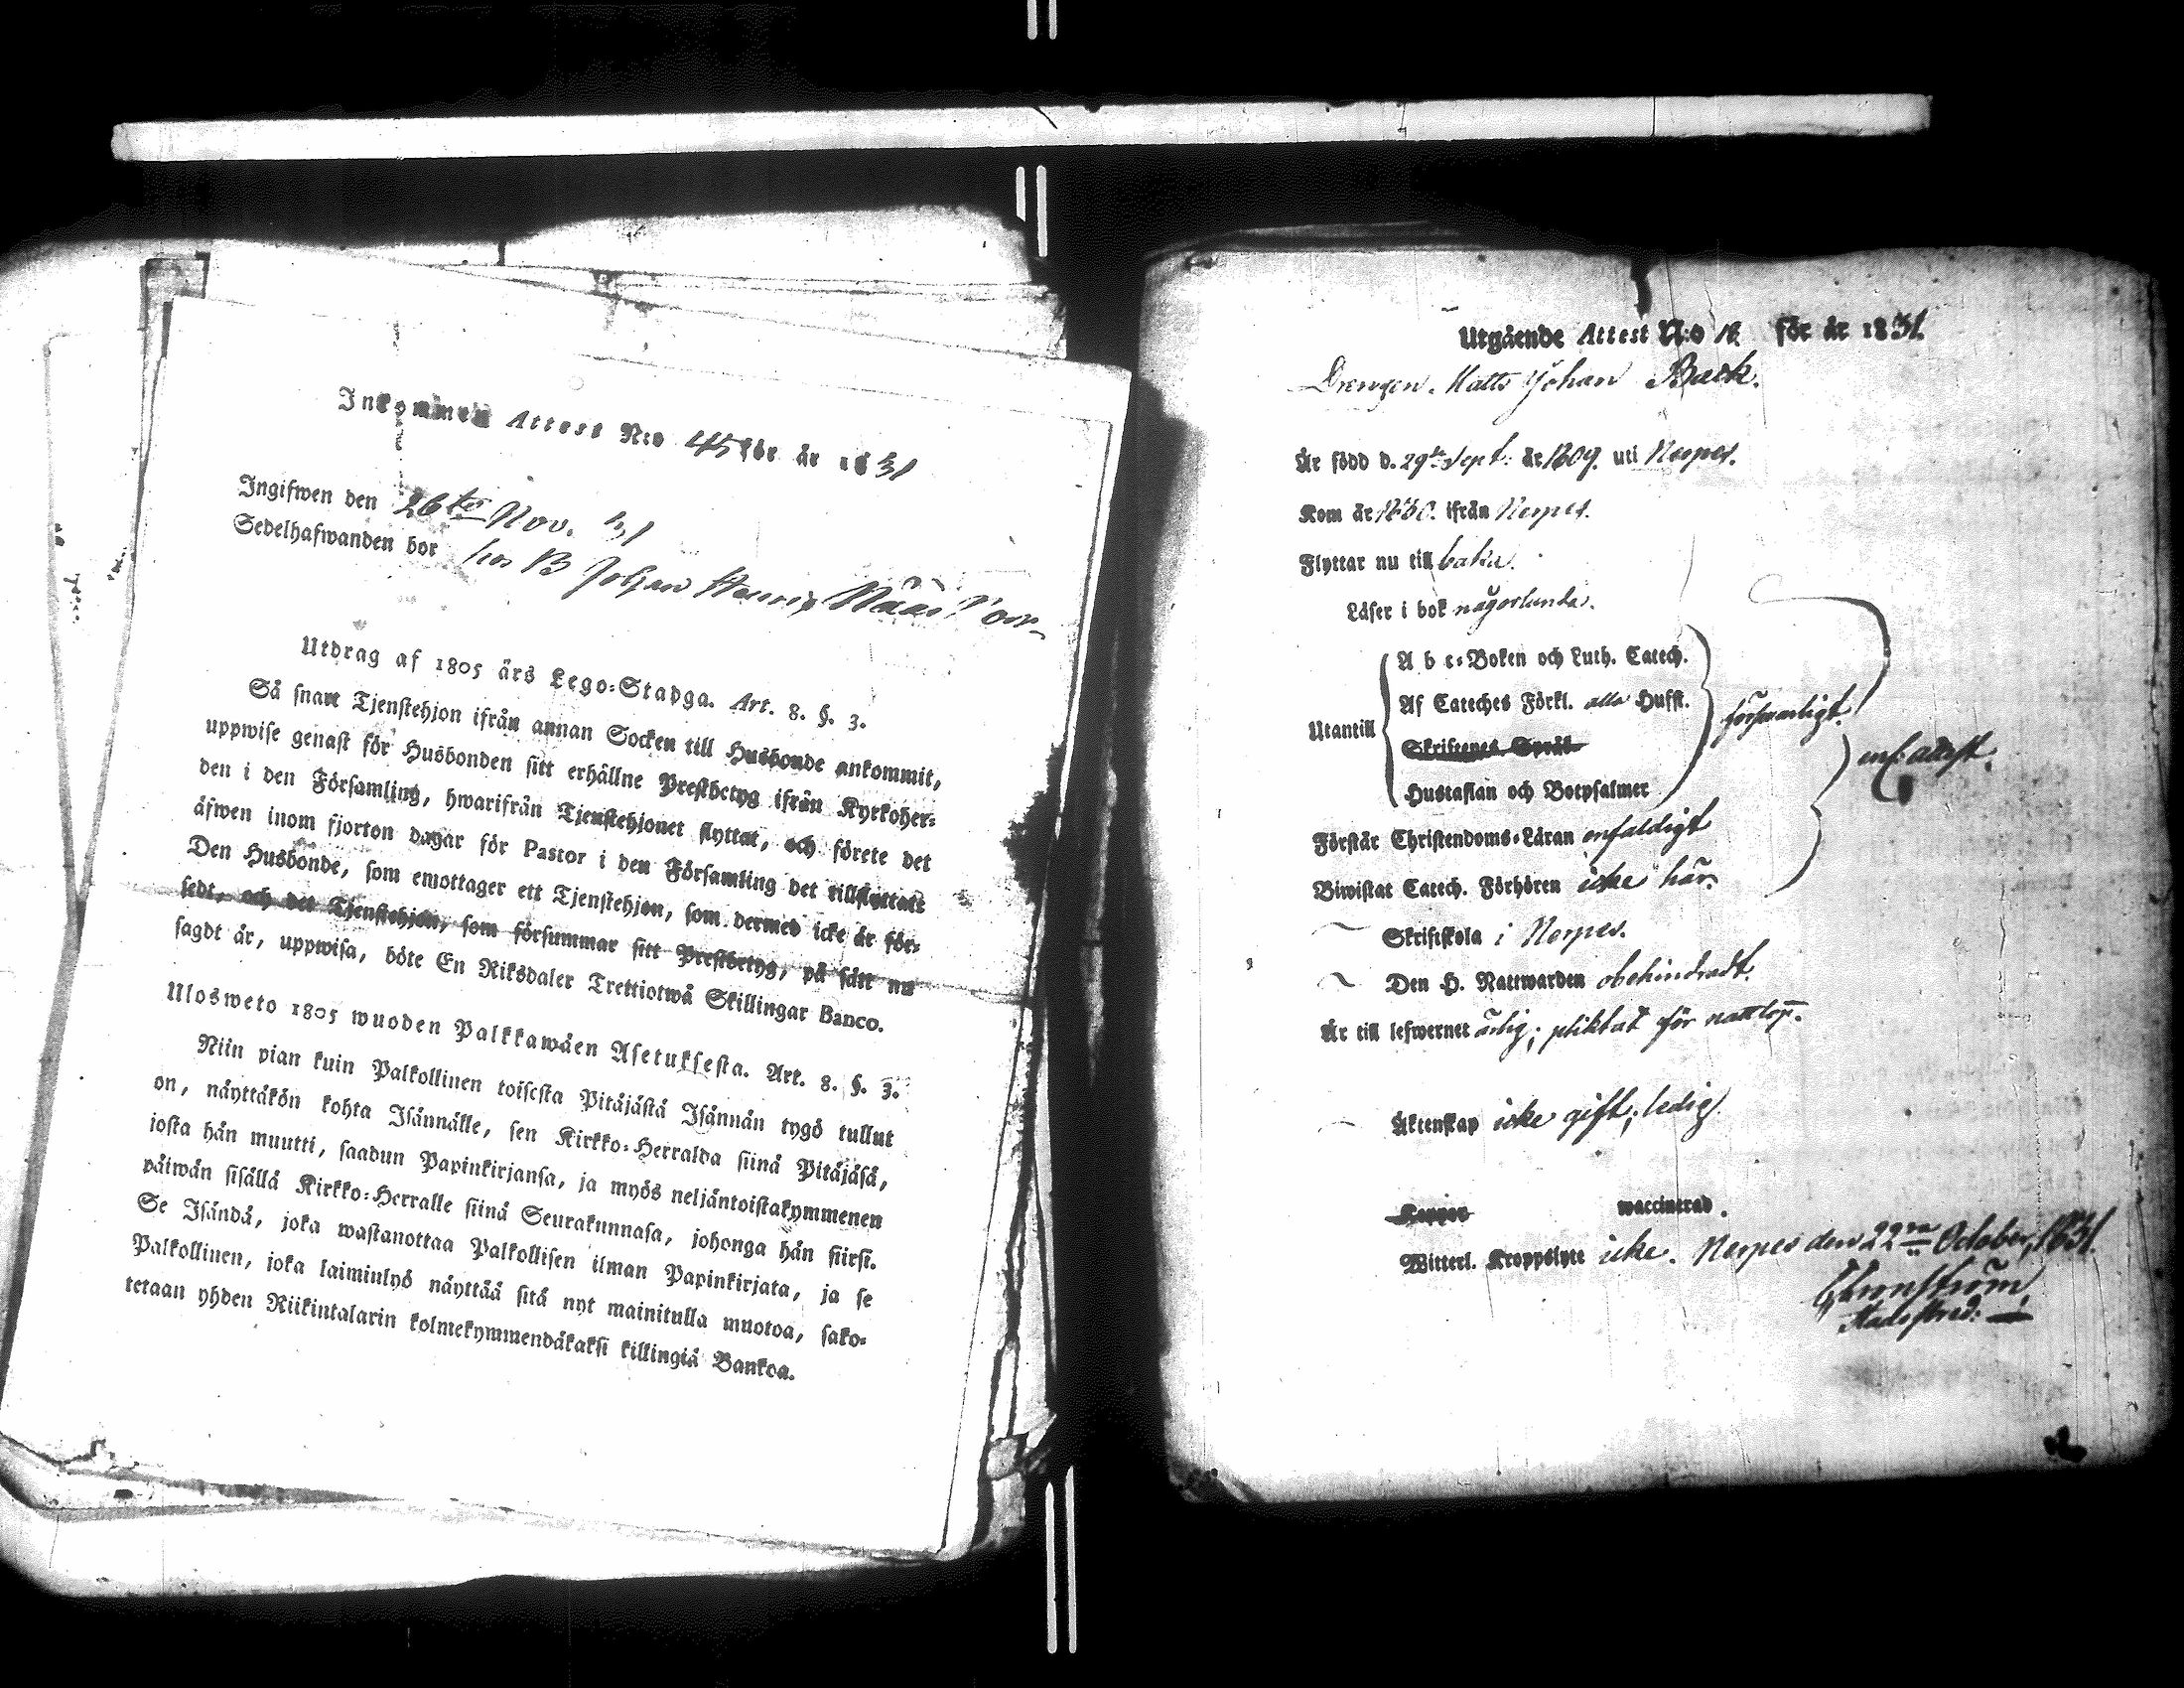 Inkommen Attest N:o 45 för år 1831
Ingifwen den 26te Nov. 31
Sedelhafwanden bor hos B Johan Henric
Utdrag af 1805 års Lego-Stadga. Art. 8. §. 3.
Så snart Tjenstehjon ifrån annan Socken till Husbonde ankommit,
uppwise genast för Husbonden sitt erhållne Prestbetyg ifrån Kyrkoher-
den i den Församling, hwarifrån Tjenstehjonet flyttat, och förete det
äfwen inom fjorton dagar för Pastor i den Församling det tillflyttat:
Den Husbonde, som emottager ett Tjenstehjon, som dermed icke är för-
sedt, och det Tjenstehjon, som försummar sitt Prestbetyg, på sätt nu
sagdt är, uppwisa, böte En Riksdaler Trettiotwå Skillingar Banco.
Ulosweto 1805 wuoden Palkkawäen Asetuksesta. Art. 8. §. 3.
Niin pian kuin Palkollinen toisesta Pitäjästä Isännän tygö tullut
on, näyttäkön kohta Isännälle, sen Kirkko-Herralda siinä Pitäjäsä,
josta hän muutti, saadun Papinkirjansa, ja myös neljäntoistakymmenen
päiwän sisällä Kirkko-Herralle siinä Seurakunnasa, johonga hän siirsi.
Se Isändä, joka wastanottaa Palkollisen ilman Papinkirjata, ja se
Palkollinen, joka laiminlyö näyttää sitä nyt mainitulla muotoa, sako-
tetaan yhden Riikintalarin kolmekymmendäkaksi killingiä Bankoa.
Utgående Attest N:o 18 för år 1831.
Drengen Matts Johan Back.
Är född d. 29de Sept. år 1809. uti Nerpes.
Kom år 1830. ifrån Nerpes.
Flyttar nu till baka.
Läser i bok någorlunda.
A b c-Boken och Luth. Catech.
Af Cateches Förkl. alla Hufst.
Utantill
försvarligt.
Skriftenes Språk
enl. attest.
Hustaflan och Botpsalmer
Förstår Christendoms-Läran enfaldigt
Biwistat Catech. Förhören icke här.
Skriftskola i Nerpes.
Den H. Nattwarden obehindradt.
Är till lefwernet ärlig; pliktat för nattlop.
Äktenskap icke gift; ledig.
Koppor waccinerad.
Witterl. Kroppslyte icke. Nerpes den 22ra October, 1831.